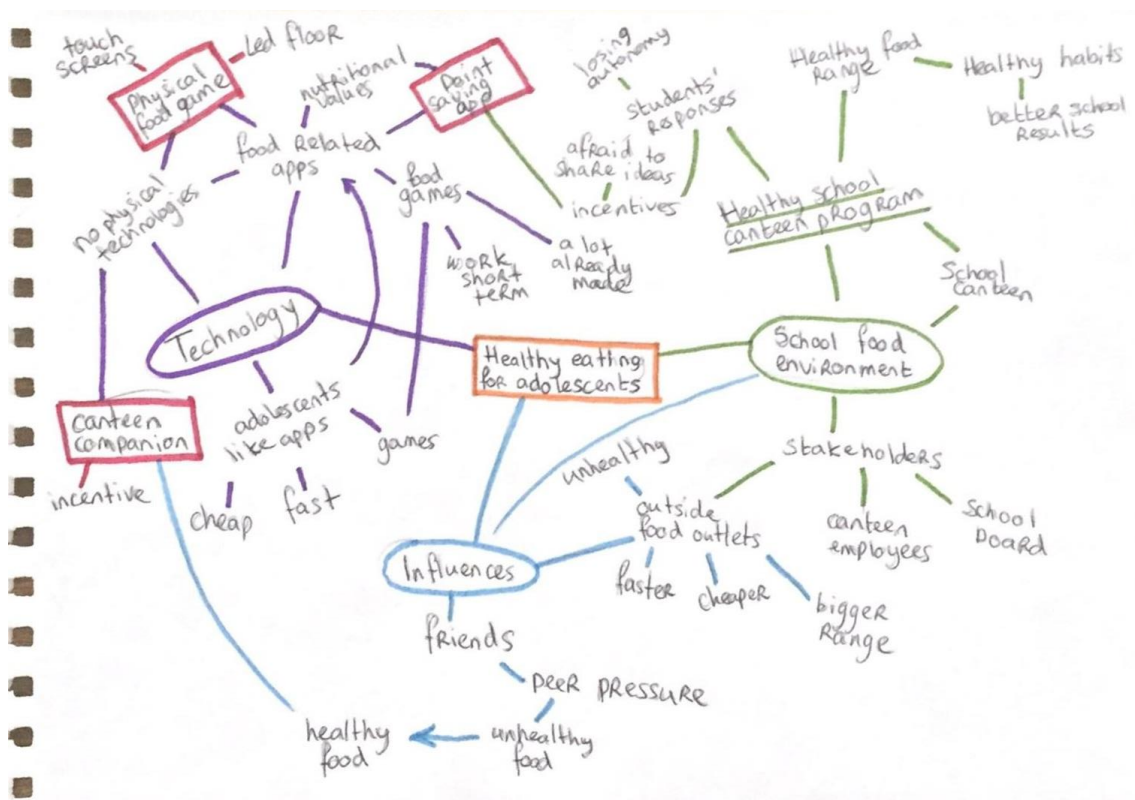 touch
screens
Physical
food game
Led floor
nutritional
values
Point
saving
app
food Related
apps
no physical
technologies
food
games
work
short
term
a lot
already
made
Technology
adolescents
like apps
games
cheap
fast
canteen
companion
incentive
losing
autonomy
students'
Responses
afraid to
share ideas
incentives
Healthy food
Range
Healthy habits
better school
Results
Healthy school
canteen program
School
canteen
Healthy eating
for adolescents
School food
environment
Stakeholders
canteen
employees
School
board
unhealthy
outside
food outlets
faster
cheaper
bigger
Range
Influences
friends
peer pressure
unhealthy
food
healthy
food